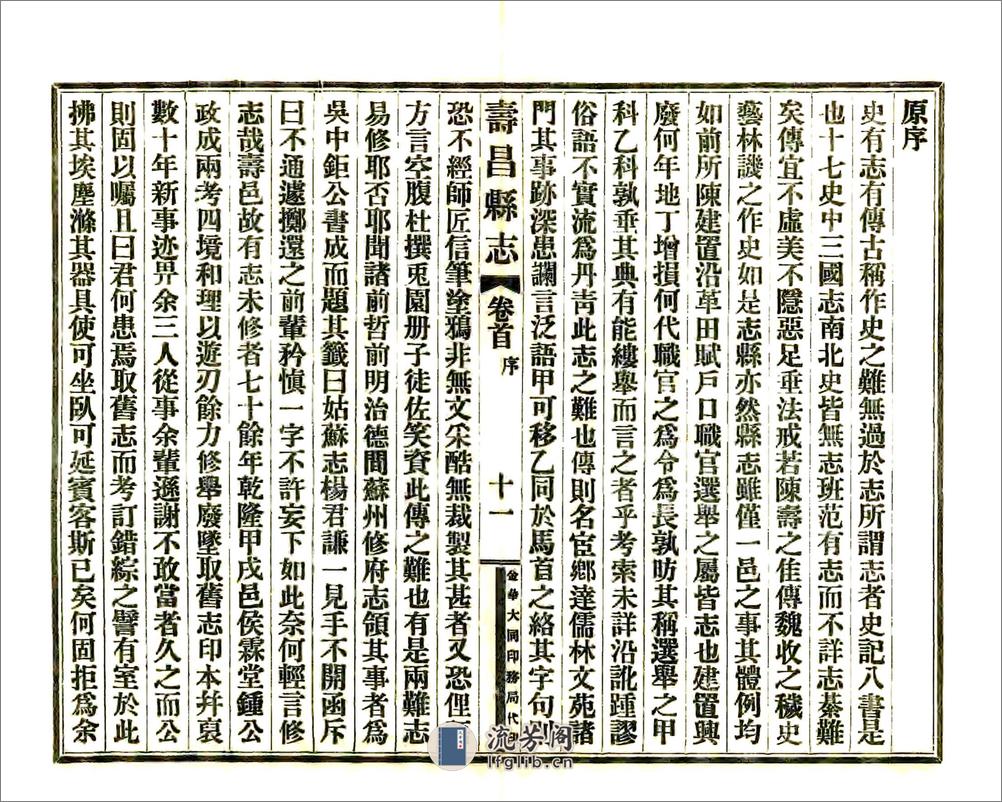 原序
史有志有傳古稱作史之難無過於志所謂志者史記八書是
也十七史中三國志南北史皆無志班范有志而不詳志綦難
矣傳宜不虛美不隱惡足垂法戒若陳壽之佳傳魏收之穢史
藝林譏之作史如是志縣亦然縣志雖僅一邑之事其體例均
如前所陳建置沿革田賦戶口職官選舉之屬皆志也建置興
廢何年地丁增損何代職官之爲令爲長孰昉其稱選舉之甲
科乙科孰垂其典有能縷舉而言之者乎考索未詳沿訛踵謬
俗語不實流爲丹靑此志之難也傳則名宦鄕達儒林文苑諸
門其事跡深患讕言泛語甲可移乙同於馬首之絡其字句
壽昌縣志 卷首 序 十一 金華大同印務局代
恐不經師匠信筆塗鴉非無文采酷無裁製其甚者又恐俚
方言空腹杜撰兎園册子徒佐笑資此傳之難也有是兩難志
易修耶否耶聞諸前哲前明治德間蘇州修府志領其事者爲
吳中鉅公書成而題其籤曰姑蘇志楊君謙一見手不開函斥
曰不通遽擲還之前輩矜愼一字不許妄下如此奈何輕言修
志哉壽邑故有志未修者七十餘年乾隆甲戌邑侯霖堂鍾公
政成兩考四境和理以遊刃餘力修舉廢墜取舊志印本幷裒
數十年新事迹畀余三人從事余輩遜謝不敢當者久之而公
則固以囑且曰君何患焉取舊志而考訂錯綜之譬有室於此
拂其埃塵滌其器具使可坐臥可延賓客斯已矣何固拒爲余
流芳阁
lfglib.cn